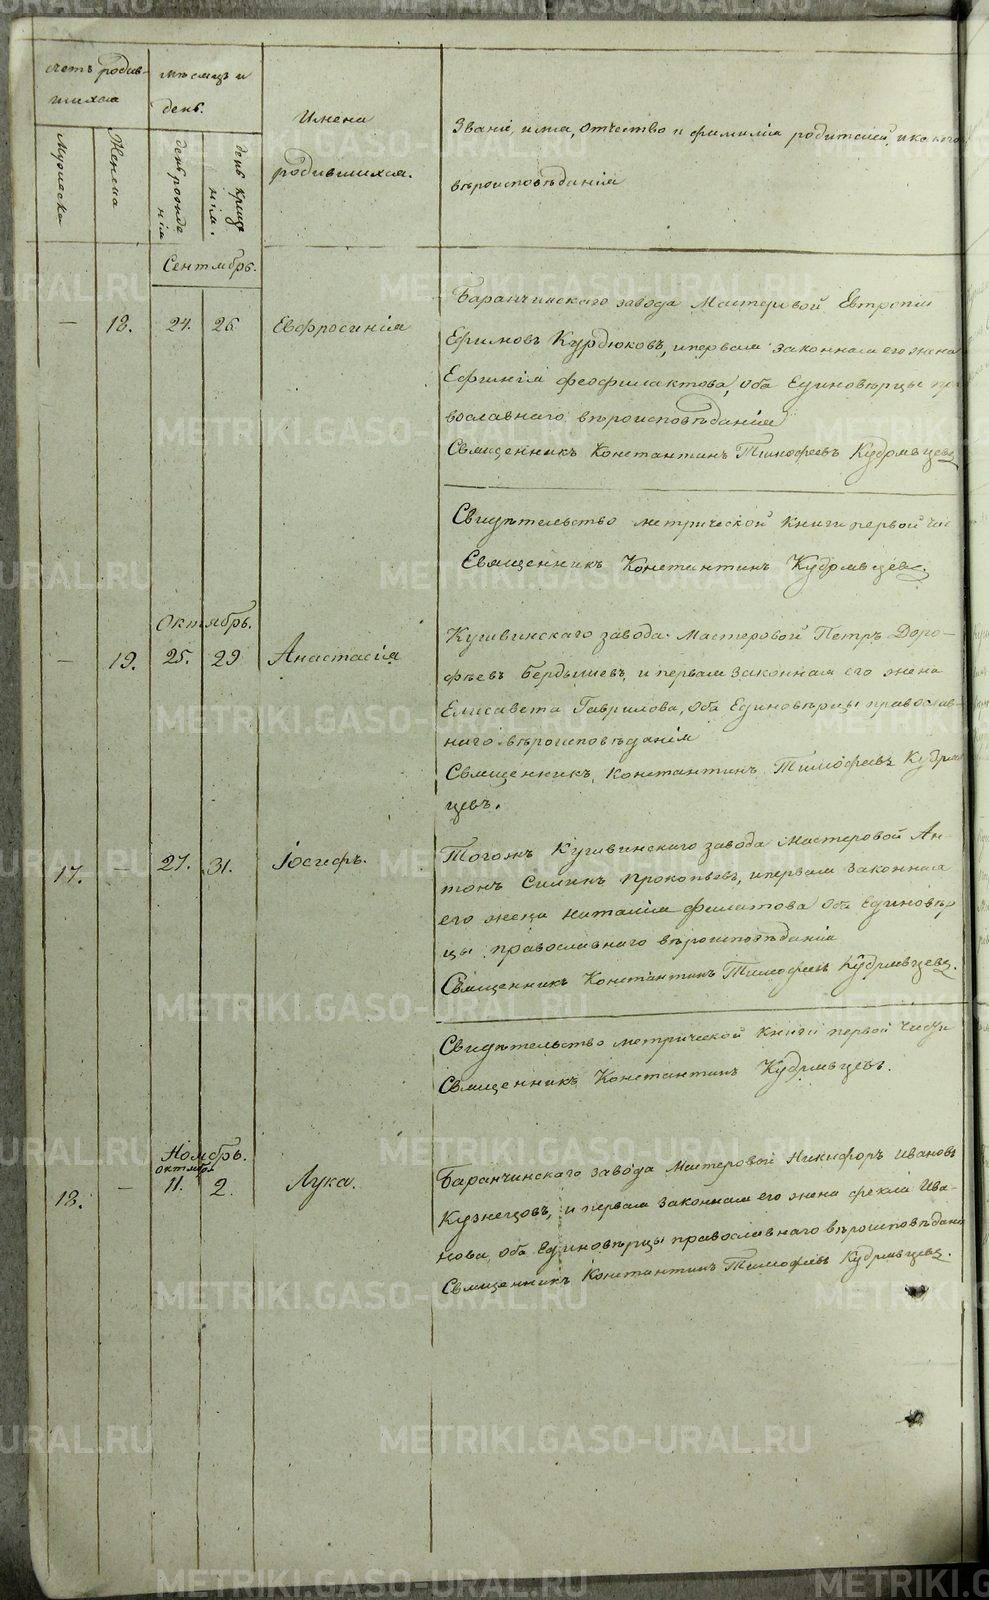 METRIKI.GASO-URAL.RU
счетъ родив-
шихся
мѣсяцъ и
день.
Имена
родившихся.
Званіе, имя, отчество и фамилія родителей, и какого
вѣроисповѣданія
Мужеска
Женска
день рожде
нія
день креще
нія.
Сентябрь.
—
18.
24.
26
Евфросинія
Баранчинскаго завода Мастеровой Евтропій
Ефимовъ Курдюковъ, и первая законная его жена
Ефимія Феофилактова, оба Единовѣрцы пра
вославнаго вѣроисповѣданія
Священникъ Константинъ Тимофеевъ Кудрявцевъ
Свидѣтельство метрической книги первой час
Священникъ Константинъ Кудрявцевъ.
Октябрь.
—
19.
25.
29
Анастасія
Кушвинскаго завода Мастеровой Петръ Доро-
фѣевъ Бердышевъ, и первая законная его жена
Елисавета Гаврилова, оба Единовѣрцы православ-
наго вѣроисповѣданія
Священникъ Константинъ Тимофеевъ Кудряв
цевъ.
17.
—
27.
31.
Іосифъ.
Тогожъ Кушвинскаго завода Мастеровой Ан-
тонъ Силинъ Прокопьевъ, и первая законная
его жена Наталія Филатова оба Единовѣр
цы православнаго вѣроисповѣданія
Священникъ Константинъ Тимофеевъ Кудрявцевъ.
Свидѣтельство метрической книги первой части
Священникъ Константинъ Кудрявцевъ.
Ноябрь.
октября
18.
—
11.
2.
Лука.
Баранчинскаго завода Мастеровой Никифоръ Ивановъ
Кузнецовъ, и первая законная его жена Фекла Ива-
нова, оба Единовѣрцы православнаго вѣроисповѣдана
Священникъ Константинъ Тимофеевъ Кудрявцевъ.